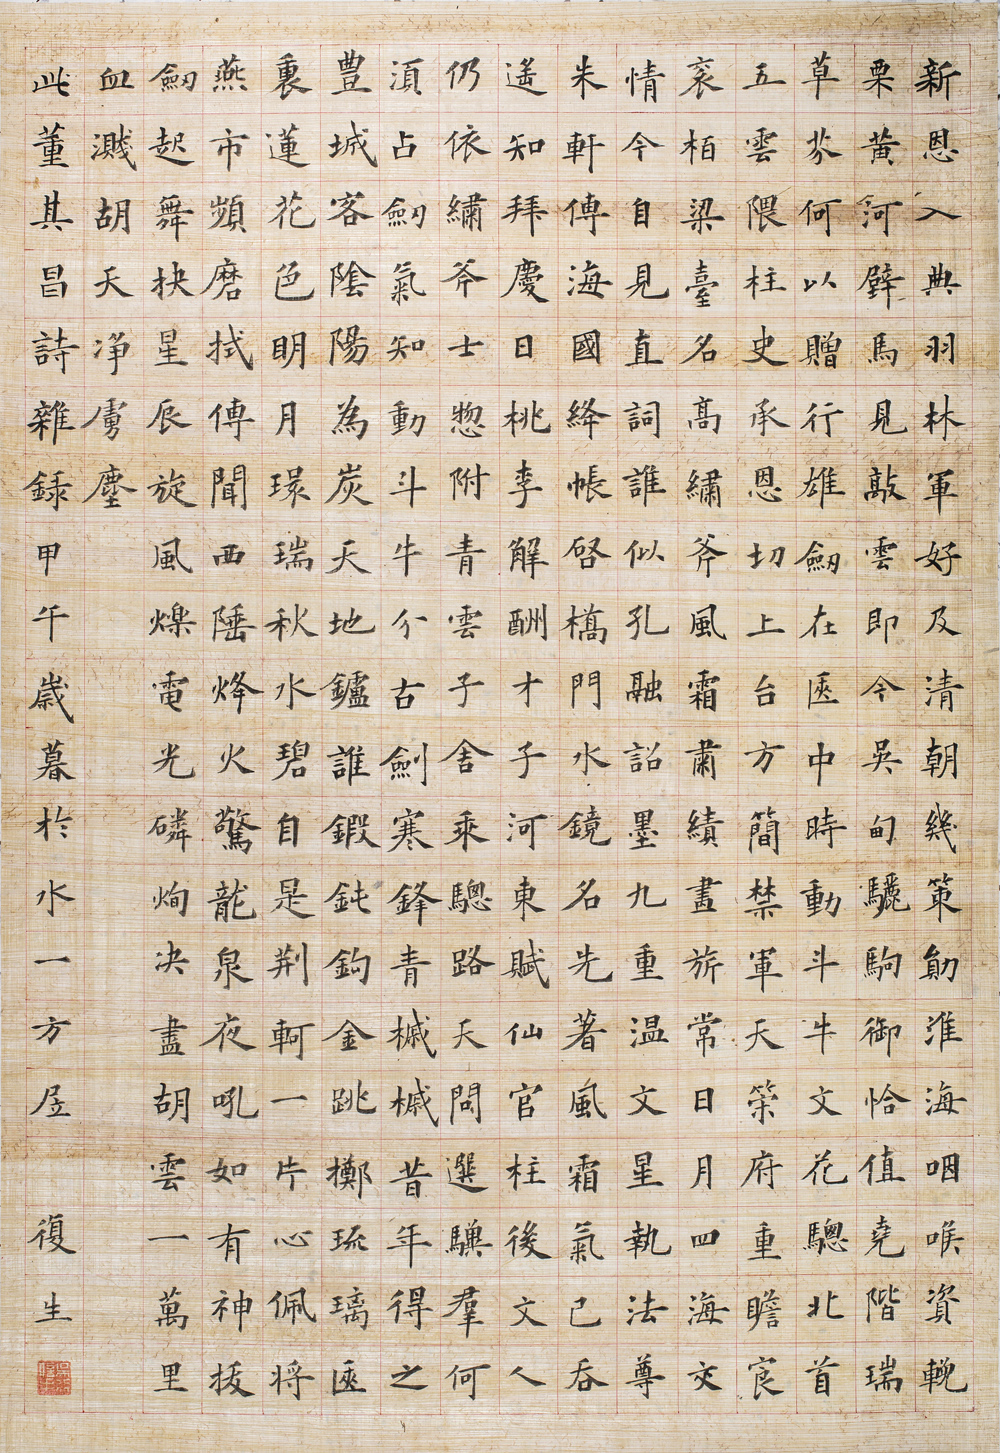 新恩入典羽林軍好及清朝幾策勛淮海咽喉資輓
粟黃河礕馬見敲雲即今吳甸驪駒御恰值堯階瑞
草芬何以贈行雄劒在匧中時動斗牛文花驄北首
五雲隈柱史承恩切上台方簡禁軍天策府重瞻
衮柏梁臺名高繡斧風霜肅績畫旂常日月四海交
情今自見直詞誰似孔融詔墨九重温文星執法尊
朱軒傳海國絳帳啓橋門水鏡名先著風霜氣已吞
遥知拜慶日桃李解酬才子河東賦仙官柱後文人
仍依繡斧士惣附青雲子舍乘驄路天閽選驥羣何
須占劒氣知動斗牛分古劍寒鋒青槭槭昔年得之
豊城客陰陽為炭天地鑪誰鍛鈍鉤金跳擲琉璃匧
裏蓮花色明月環瑞秋水碧自是荆軻一片心佩将
燕市頻磨拭傳聞西陲烽火驚龍泉夜吼如有神拔
劒起舞抉星辰旋風爍電光磷炯决盡胡雲一萬里
血濺胡天净虜塵
此董其昌詩雜錄甲午歲暮於水一方居 復生